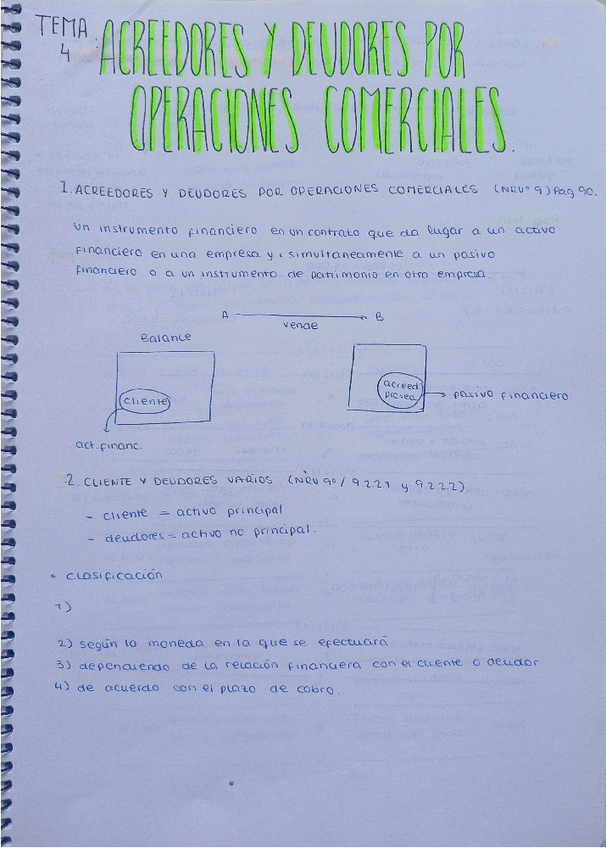 TEMA
4
ACREEDORES Y DEUDORES POR
OPERACIONES COMERCIALES.
1. ACREEDORES Y DEUDORES POR OPERACIONES COMERCIALES (NRVº 9) Pag 90.
un instrumento financiero en un contrato que da lugar a un activo
financiero en una empresa y, simultaneamente a un pasivo
financiero o a un instrumento de patrimonio en otra empresa.
A → B
vende
Balance
cliente
acreed
proveed
→ pasivo financiero
act. financ.
2. CLIENTE Y DEUDORES VARIOS (NRV 9º / 9.2.2.1 y 9.2.2.2)
- cliente = activo principal
- deudores = activo no principal.
• clasificación
1)
2) según la moneda en la que se efectuará
3) dependiendo de la relación financiera con el cliente o deudor
4) de acuerdo con el plazo de cobro.